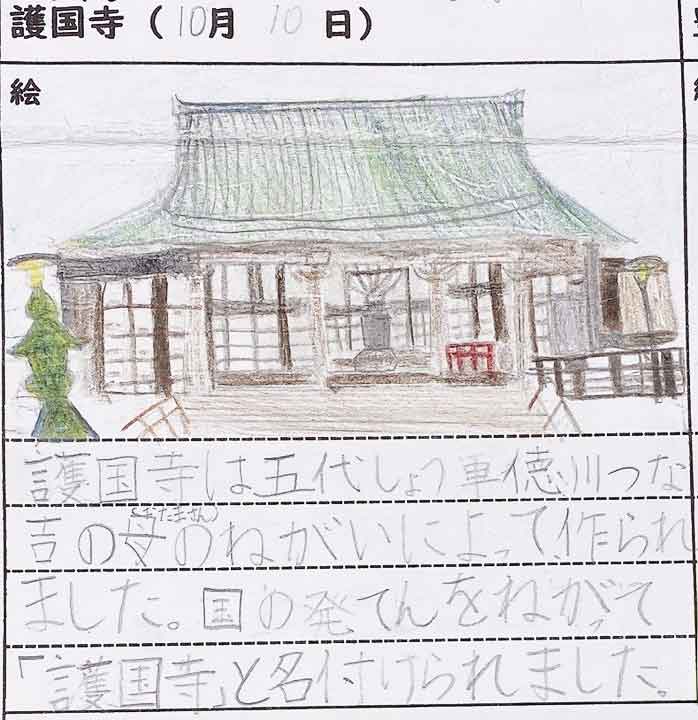 護国寺（10月10日）
絵
護国寺は五代しょう軍徳川つな
吉の母(おたまさん)のねがいによって、作られ
ました。国の発てんをねがって
「護国寺」と名付けられました。